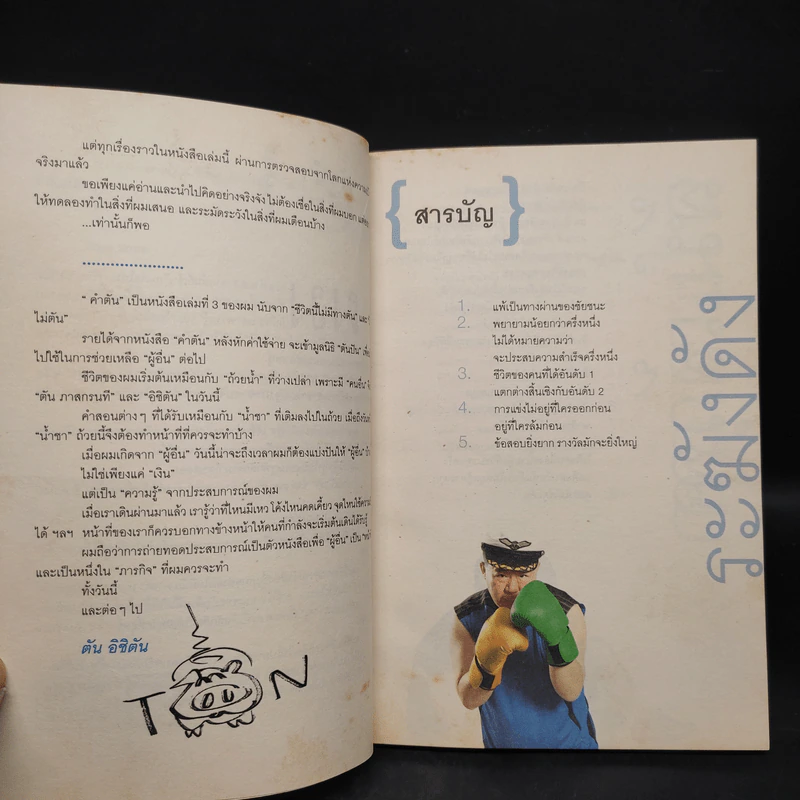 แต่ทุกเรื่องราวในหนังสือเล่มนี้ ผ่านการตรวจสอบจากโลกแห่งความ
จริงมาแล้ว
ขอเพียงแค่อ่านและนำไปคิดอย่างจริงจัง ไม่ต้องเชื่อในสิ่งที่ผมบอก
ให้ทดลองทำในสิ่งที่ผมเสนอ และระมัดระวังในสิ่งที่ผมเตือนบ้าง
...เท่านั้นก็พอ
" คำตัน" เป็นหนังสือเล่มที่ 3 ของผม นับจาก "ชีวิตนี้ไม่มีทางตัน" และ
ไม่ตัน"
รายได้จากหนังสือ "คำตัน" หลังหักค่าใช้จ่าย จะเข้ามูลนิธิ "ตันปัน"
ไปใช้ในการช่วยเหลือ "ผู้อื่น" ต่อไป
ชีวิตของผมเริ่มต้นเหมือนกับ "ถ้วยน้ำ" ที่ว่างเปล่า เพราะมี "คนอื่น"
"ตัน ภาสกรนที" และ "อิชิตัน" ในวันนี้
คำสอนต่างๆ ที่ได้รับเหมือนกับ "น้ำชา" ที่เติมลงไปในถ้วย เมื่อถึงวัน
"น้ำชา" ถ้วยนี้จึงต้องทำหน้าที่ที่ควรจะทำบ้าง
เมื่อผมเกิดจาก "ผู้อื่น" วันนี้น่าจะถึงเวลาผมก็ต้องแบ่งปันให้ "ผู้อื่น"
ไม่ใช่เพียงแค่ "เงิน"
แต่เป็น "ความรู้" จากประสบการณ์ของผม
เมื่อเราเดินผ่านมาแล้ว เรารู้ว่าที่ไหนมีเหว โค้งไหนคดเคี้ยว จุดไหนใช้ความ
ได้ ฯลฯ หน้าที่ของเราก็ควรบอกทางข้างหน้าให้คนที่กำลังจะเริ่มต้นเดินได้รับรู้
ผมถือว่าการถ่ายทอดประสบการณ์เป็นตัวหนังสือเพื่อ "ผู้อื่น" เป็น
และเป็นหนึ่งใน "ภารกิจ" ที่ผมควรจะทำ
ทั้งวันนี้
และต่อๆ ไป
ตัน อิชิตัน
T N
{สารบัญ}
1. แพ้เป็นทางผ่านของชัยชนะ
2. พยายามน้อยกว่าครึ่งหนึ่ง
ไม่ได้หมายความว่า
จะประสบความสำเร็จครึ่งหนึ่ง
3. ชีวิตของคนที่ได้อันดับ 1
แตกต่างสิ้นเชิงกับอันดับ 2
4. การแข่งไม่อยู่ที่ใครออกก่อน
อยู่ที่ใครล้มก่อน
5. ข้อสอบยิ่งยาก รางวัลมักจะยิ่งใหญ่
ระฆังดัง